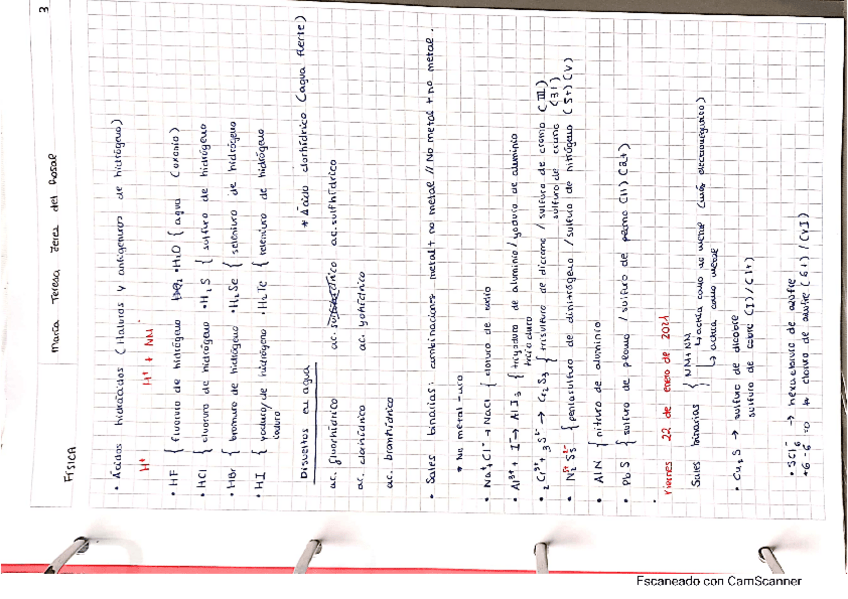 3
FÍSICA María Teresa Jerez del Rosal
• Ácidos hidrácidos (Haluros y anfígenuros de hidrógeno)
H⁺ H⁺ + NM
• HF { fluoruro de hidrógeno • H₂O { agua (oxonio)
• HCl { cloruro de hidrógeno • H₂S { sulfuro de hidrógeno
• HBr { bromuro de hidrógeno • H₂Se { seleniuro de hidrógeno
• HI { yoduro/de hidrógeno • H₂Te { teleniuro de hidrógeno
ioduro
Disueltos en agua * Ácido clorhídrico (agua fuerte)
ac. fluorhídrico ac. sulfhídrico
ac. clorhídrico ac. yohídrico
ac. bromhídrico
• Sales binarias: combinaciones metal + no metal // No metal + no metal.
* No metal-uro
• Na⁺ Cl⁻ → NaCl { cloruro de sodio
• Al³⁺ + I⁻ → Al I₃ { triyoduro de aluminio / yoduro de aluminio
• 2 Cr³⁺ + 3 S²⁻ → Cr₂S₃ { trisulfuro de dicromo / sulfuro de cromo (III)
sulfuro de cromo (3+)
• N₂⁵⁺ S₅²⁻ { pentasulfuro de dinitrógeno / sulfuro de nitrógeno (5+) (V)
• AlN { nitruro de aluminio
• PbS { sulfuro de plomo / sulfuro de plomo (II) (2+)
Viernes 22 de enero de 2021
Sales binarias { NM + NM
↳ actúa como no metal (más electronegativo)
↳ actúa como metal
• Cu₂S → sulfuro de dicobre
sulfuro de cobre (I) / (1+)
• SCl₆⁻ → hexacloruro de azufre
+6 -6 = 0 ↳ cloruro de azufre (6+) / (VI)
Escaneado con CamScanner